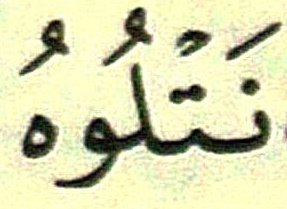 نَتْلُوهُ